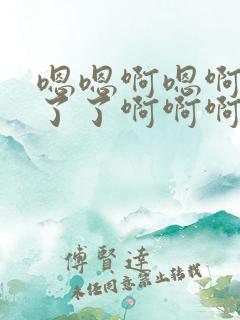 嗯嗯啊嗯啊
了了啊啊啊
傅賢達
未任同意禁止转载